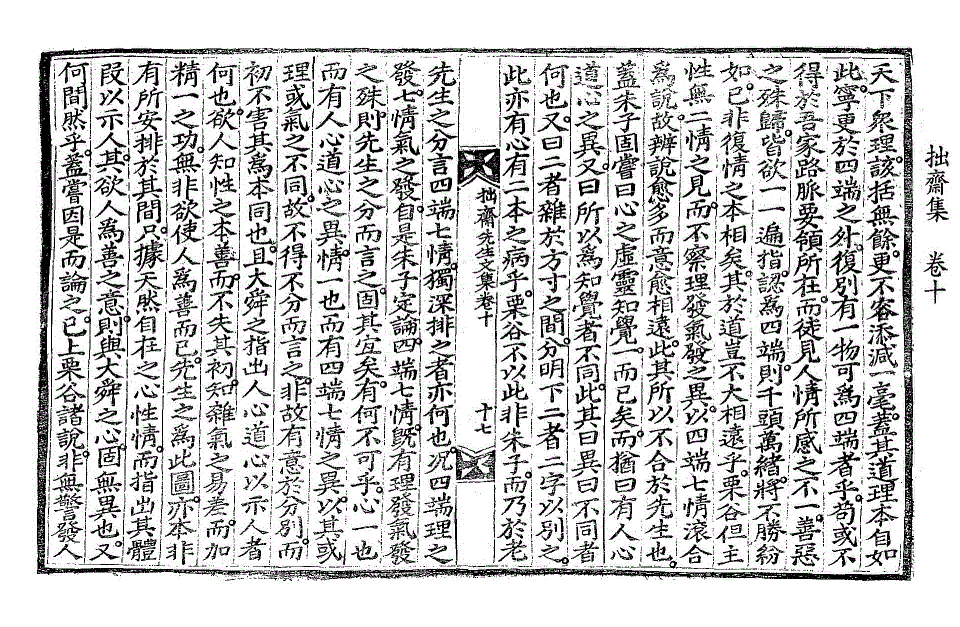 拙齋集　卷十
天下衆理。該括無餘。更不容添減一毫。蓋其道理本自如
此。寧更於四端之外。復別有一物可爲四端者乎。苟或不
得於吾家路脈要領所在。而徒見人情所感之不一。善惡
之殊歸。皆欲一一遍指。認爲四端。則千頭萬緖。將不勝紛
如。已非復情之本相矣。其於道豈不大相遠乎。栗谷但主
性無二情之見。而不察理發氣發之異。以四端七情滾合
爲說。故辨說愈多而意愈相遠。此其所以不合於先生也。
蓋朱子固嘗曰心之虛靈知覺。一而已矣。而猶曰有人心
道心之異。又曰所以爲知覺者不同。此其曰異曰不同者
何也。又曰二者雜於方寸之間。分明下二者二字以別之。
此亦有心有二本之病乎。栗谷不以此非朱子。而乃於老
拙齋先生文集卷十
十七
先生之分言四端七情。獨深排之者亦何也。況四端理之
發。七情氣之發。自是朱子定論。四端七情。旣有理發氣發
之殊。則先生之分而言之。固其宜矣。有何不可乎。心一也
而有人心道心之異。情一也而有四端七情之異。以其或
理或氣之不同。故不得不分而言之。非故有意於分別。而
初不害其爲本同也。且大舜之指出人心道心以示人者
何也。欲人知性之本善而不失其初。知雜氣之易差而加
精一之功。無非欲使人爲善而已。先生之爲此圖。亦本非
有所安排於其間。只據天然自在之心性情。而指出其體
段以示人。其欲人爲善之意。則與大舜之心。固無異也。又
何間然乎。蓋嘗因是而論之。已上栗谷諸說。非無警發人